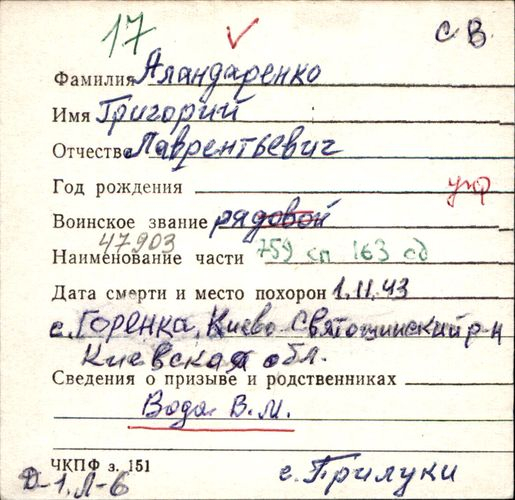 17 СВ
Фамилия Аландаренко
Имя Григорий
Отчество Лаврентьевич
Год рождения
укр
Воинское звание рядовой
47903
Наименование части 759 сп 163 сд
Дата смерти и место похорон 1.11.43
с. Горенка, Киево-Святошинский р-н
Киевская обл.
Сведения о призыве и родственниках
Вода В.М.
ЧКПФ з. 151
Д-1, Л-6 с. Прилуки